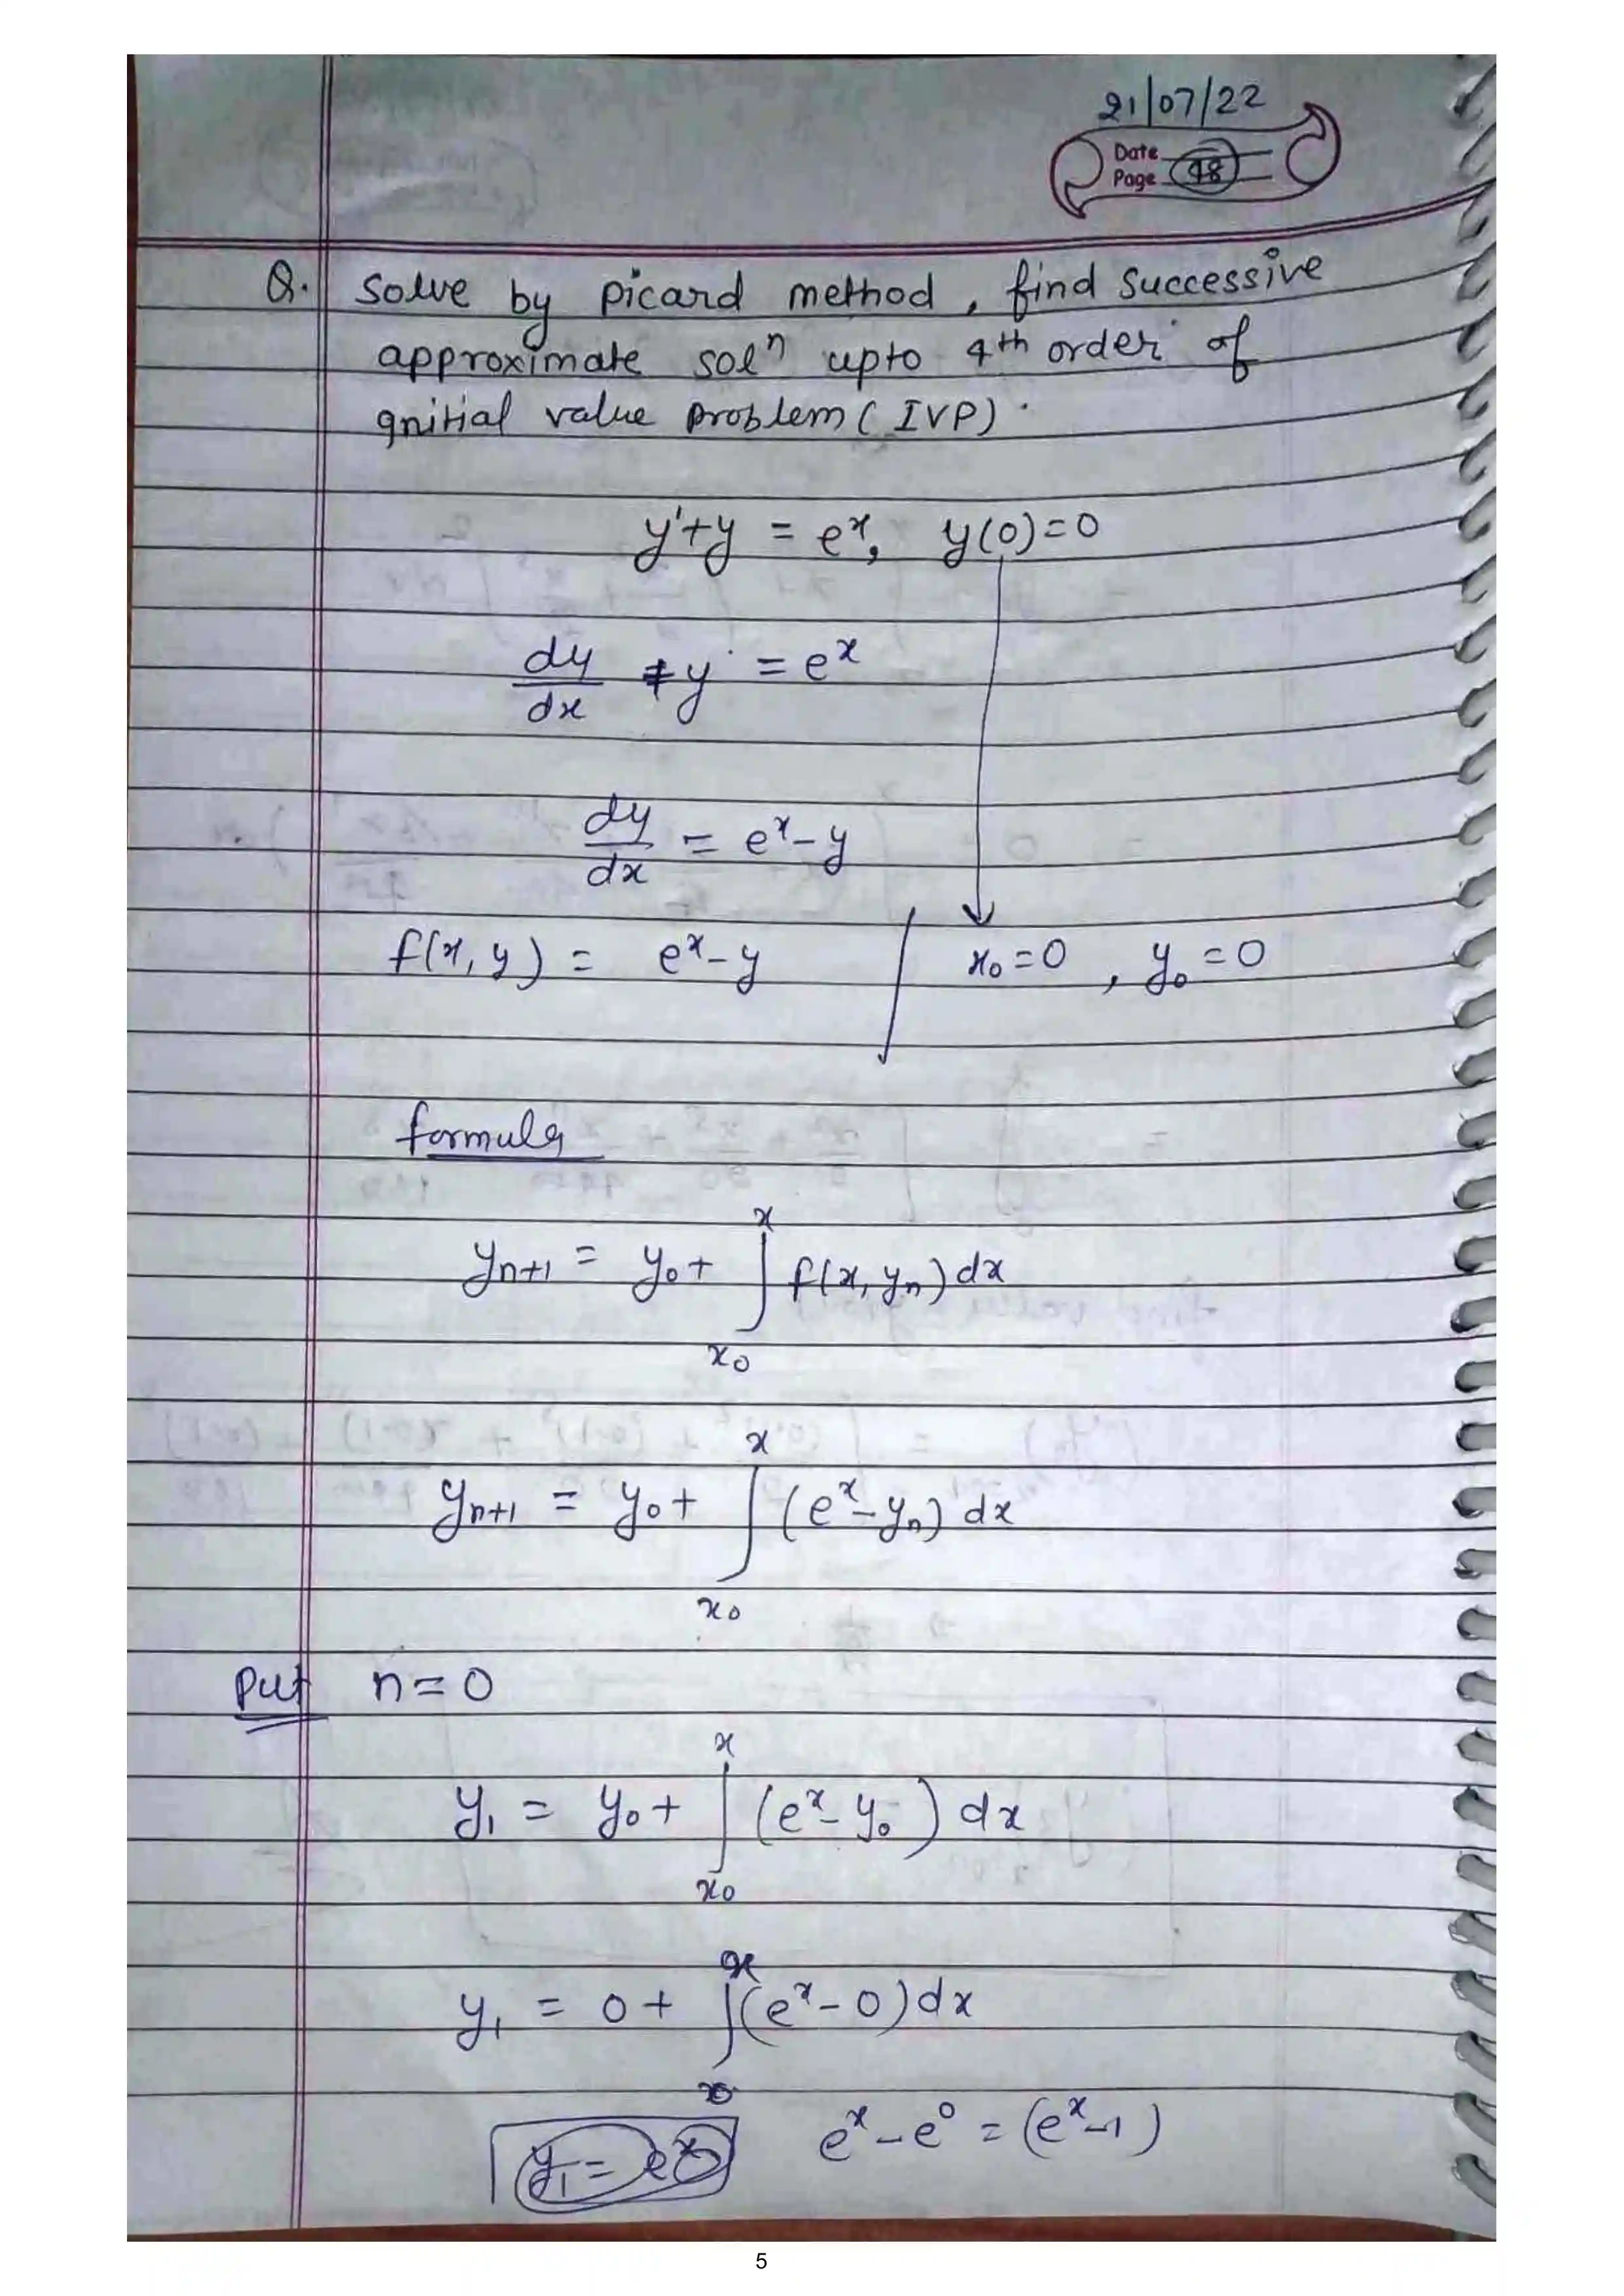 21/07/22
Date
Page 48
Q. Solve by picard method, find Successive
approximate solⁿ upto 4th order of
gnitial value problem (IVP).
y'+y = eˣ, y(0)=0
dy/dx + y = eˣ
dy/dx = eˣ-y
f(x, y) = eˣ-y / x₀=0 , y₀=0
formula
yₙ₊₁ = y₀+ ∫ₓ₀ˣ f(x, yₙ) dx
yₙ₊₁ = y₀+ ∫ₓ₀ˣ (eˣ-yₙ) dx
Put n=0
y₁ = y₀+ ∫ₓ₀ˣ (eˣ-y₀) dx
y₁ = 0+ ∫₀ˣ (eˣ-0)dx
eˣ-e⁰ = (eˣ-1)
y₁ = eˣ
5